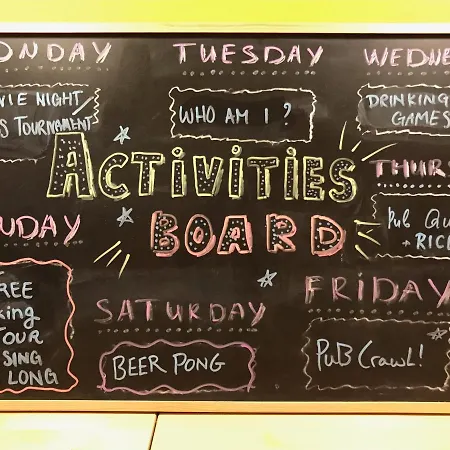 ONDAY
TUESDAY
WEDNE
VIE NIGHT
S TOURNAMENT
WHO AM I ?
DRINKING
GAMES
ACTIVITIES
BOARD
THURS
PUB QU
+ RICE
UDAY
REE
king
TOUR
SING
LONG
SATURDAY
BEER PONG
FRIDAY
PUB CrawL!